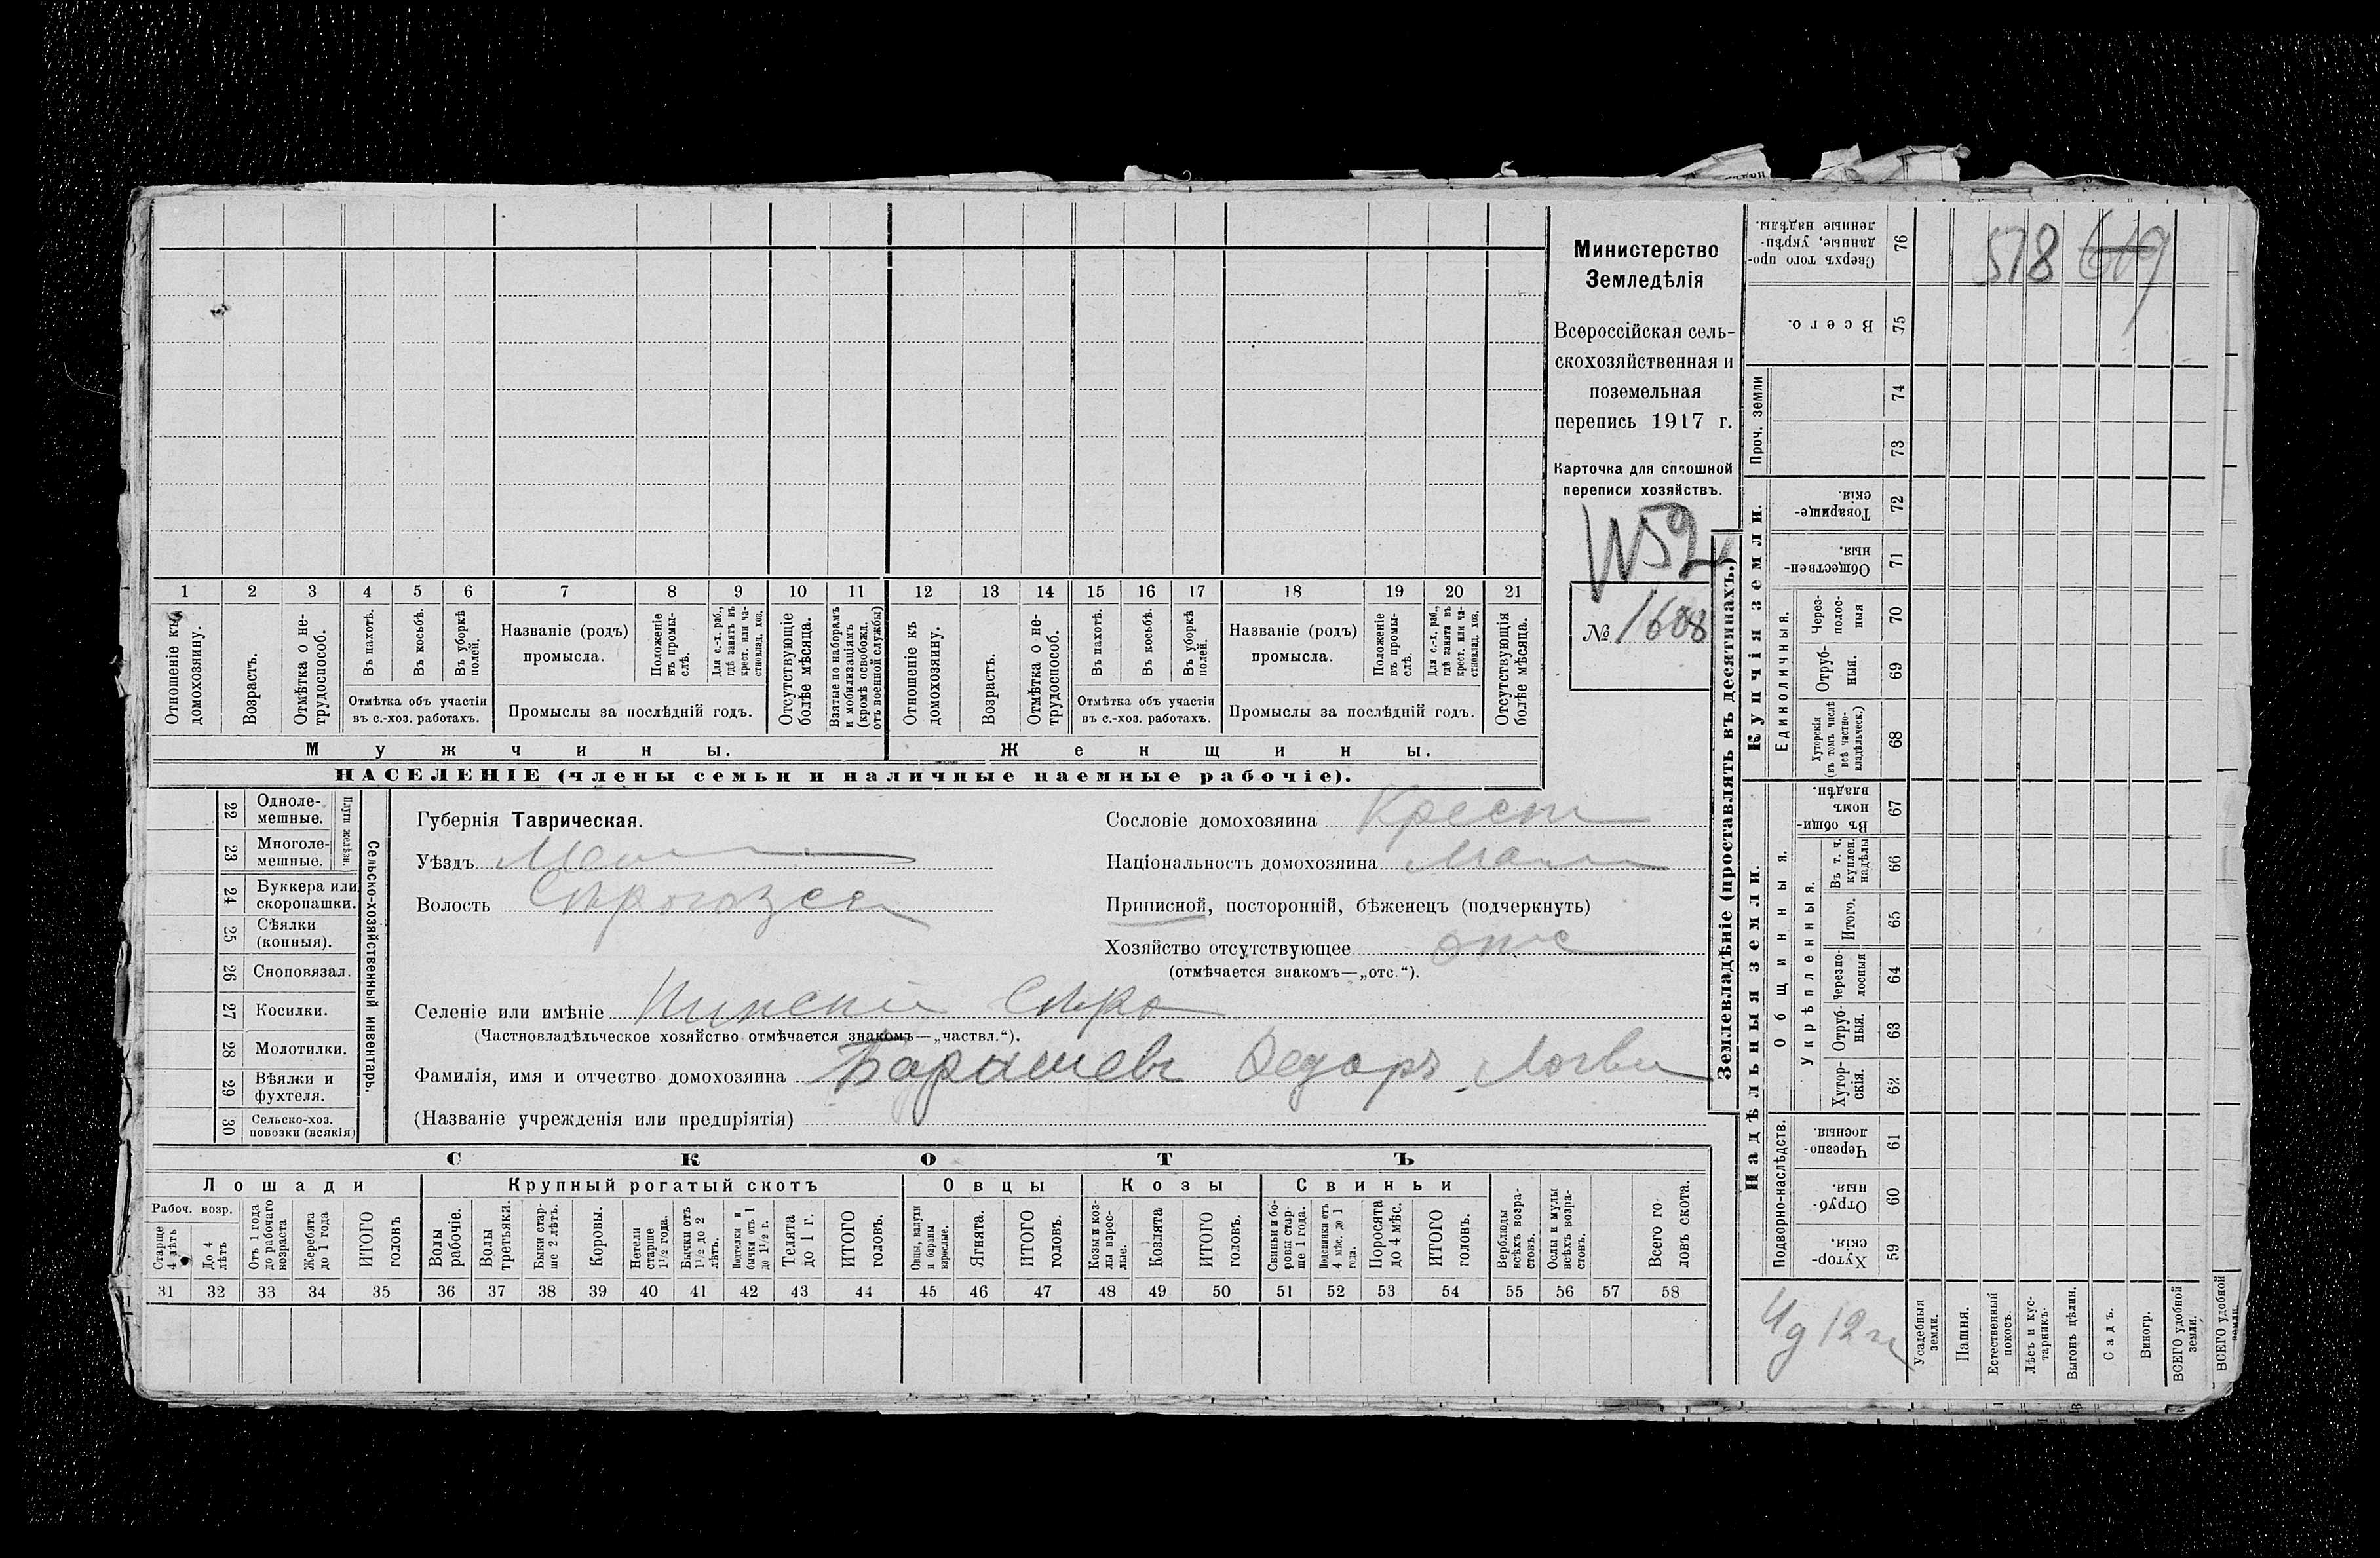 1 2 3 4 5 6 7 8 9 10 11 12 13 14 15 16 17 18 19 20 21
Отношеніе къ домохозяину.
Возрастъ.
Отмѣтка о не-
трудоспособ.
Въ пахотѣ.
Въ косьбѣ.
Въ уборкѣ полей.
Отмѣтка объ участіи
въ с.-хоз. работахъ.
Названіе (родъ)
промысла.
Положеніе
въ промы-
слѣ.
Для с.-х. раб.,
гдѣ занятъ въ
крест. или ча-
стновлад. хоз.
Промыслы за послѣдній годъ.
Отсутствующіе
болѣе мѣсяца.
Взятые по наборамъ
и мобилизаціямъ
(кромѣ освобожд.
отъ военной службы)
Отношеніе къ
домохозяину.
Возрастъ.
Отмѣтка о не-
трудоспособ.
Въ пахотѣ.
Въ косьбѣ.
Въ уборкѣ
полей.
Отмѣтка объ участіи
въ с.-хоз. работахъ.
Названіе (родъ)
промысла.
Положеніе
въ промы-
слѣ.
Для с.-х. раб.,
гдѣ занята въ
крест. или ча-
стновлад. хоз.
Промыслы за послѣдній годъ.
Отсутствующія
болѣе мѣсяца.
Мужчины.
Женщины.
НАСЕЛЕНІЕ (члены семьи и наличные наемные рабочіе).
Министерство
Земледѣлія
Всероссійская сель-
скохозяйственная и
поземельная
перепись 1917 г.
Карточка для сплошной
переписи хозяйствъ.
№ 1608
Сельско-хозяйственный инвентарь.
Плуги желѣзн.
22 Одноле-
мешные.
23 Многоле-
мешные.
24 Буккера или
скоропашки.
25 Сѣялки
(конныя).
26 Сноповязал.
27 Косилки.
28 Молотилки.
29 Вѣялки и
фухтеля.
30 Сельско-хоз.
повозки (всякія)
Губернія Таврическая.
Уѣздъ
Волость
Селеніе или имѣніе
(Частновладѣльческое хозяйство отмѣчается знакомъ—„частвл.“).
Фамилія, имя и отчество домохозяина Федоръ Логви
(Названіе учрежденія или предпріятія)
Сословіе домохозяина Крест
Національность домохозяина
Приписной, посторонній, бѣженецъ (подчеркнуть)
Хозяйство отсутствующее отс
(отмѣчается знакомъ—„отс.“).
СКОТЪ
Лошади
Рабоч. возр.
Старше
4 лѣтъ
До 4
лѣтъ
Отъ 1 года
до рабочаго
возраста
Жеребята
до 1 года
ИТОГО
головъ
Крупный рогатый скотъ
Волы
рабочіе.
Волы
третьяки.
Быки стар-
ше 2 лѣтъ.
Коровы.
Нетели
старше
1½ года.
Бычки отъ
1½ до 2
лѣтъ.
Подтелки и
бычки отъ 1
до 1½ г.
Телята
до 1 г.
ИТОГО
головъ.
Овцы
Овцы, валухи
и бараны
взрослые.
Ягнята.
ИТОГО
головъ.
Козы
Козы и коз-
лы взрос-
лые.
Козлята
ИТОГО
головъ.
Свиньи
Свиньи и бо-
ровы стар-
ше 1 года.
Подсвинки отъ
4 мѣс. до 1
года.
Поросята
до 4 мѣс.
ИТОГО
головъ.
Верблюды
всѣхъ возра-
стовъ.
Ослы и мулы
всѣхъ возра-
стовъ.
Всего го-
ловъ скота.
31 32 33 34 35 36 37 38 39 40 41 42 43 44 45 46 47 48 49 50 51 52 53 54 55 56 57 58
Землевладѣніе (проставлять въ десятинахъ.)
Купчія земли.
Надѣльныя земли.
Проч. земли
Сверхъ того про-
данные, укрѣп-
ленные надѣлы.
76
518
Всего.
75
74
73
Товарище-
скія.
72
Обществен-
ныя.
71
Единоличныя.
Через-
полос-
ныя
70
Отруб-
ныя.
69
Хуторскія
(въ томъ числѣ
всѣ частно-
владѣльческ.)
68
Общинныя.
Въ общи-
номъ
владѣн.
67
Укрѣпленныя.
Въ т. ч.
куплен.
надѣлы
66
Итого.
65
Черезпо-
лосныя
64
Отруб-
ныя.
63
Хутор-
скія.
62
Подворно-наслѣдств.
Черезпо-
лосныя.
61
Отруб-
ныя.
60
Хутор-
скія.
59
Усадебныя
земли.
Пашня.
Естественный
покосъ.
Лѣсъ и кус-
тарникъ.
Выгонъ цѣлин.
Садъ.
Виногр.
ВСЕГО удобной
земли.
ВСЕГО удобной
земли.